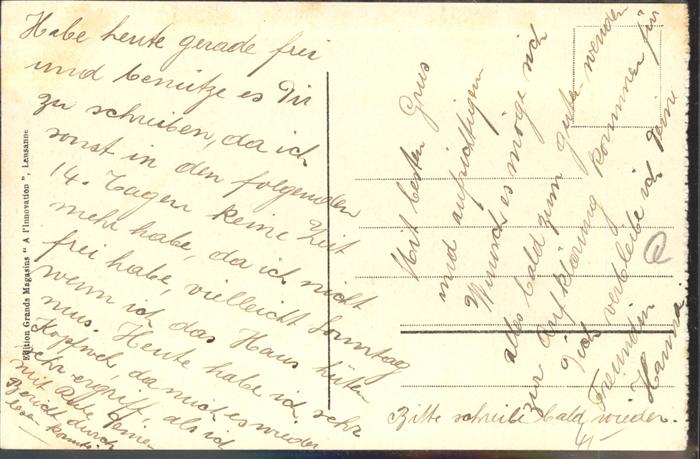 Habe heute gerade frei
und benütze es Dir
zu schreiben, da ich
sonst in den folgenden
14. Tagen keine Zeit
mehr habe, da ich nicht
frei habe, vielleicht Sonntag
wenn ich das Haus hüten
mus. Heute habe ich sehr
Kopfweh, da mich es wieder
sehr ergriff, als ich
mit Rude Deinen
Bericht durch
lesen konnte.
Mit besten Grus
und aufrichtigen
Wunsch es möge sich
alles bald zum guten wenden
zur Aufklärung kommen für
Dich verbleibe ich Deine
Freundin
Hanna.
Bitte schreibe bald wieder.
Edition Grands Magasins " A l'Innovation ", Lausanne